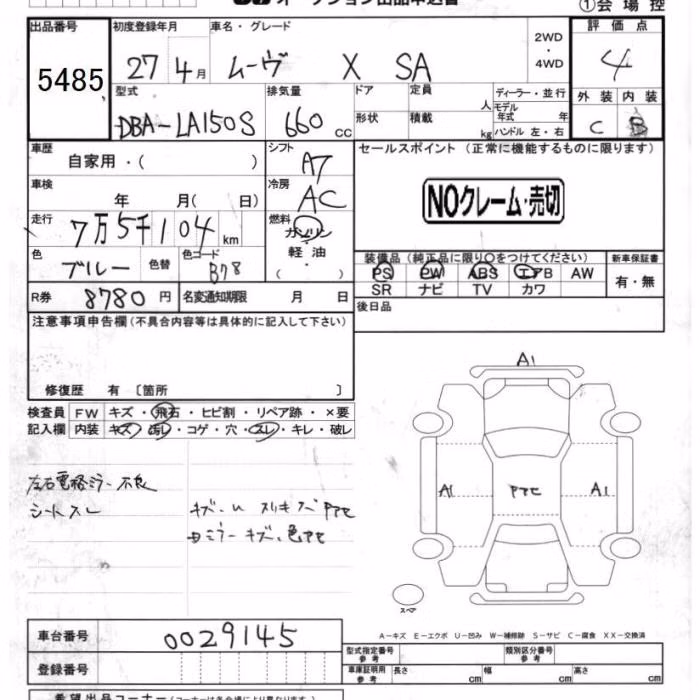 オークション出品申込書
①会場控
出品番号 初度登録年月 車名・グレード 2WD ・ 4WD 評価点
5485 27年4月 ムーヴ X SA 4
型式 排気量 ドア 定員 人 ディーラー・並行 外装 内装
DBA-LA150S 660cc 形状 積載 kg モデル年式 年 ハンドル 左・右 C B
車歴 自家用・( ) シフト A7 セールスポイント (正常に機能するものに限ります)
車検 年 月( 日) 冷房 AC NOクレーム・売切
走行 7万5千104km 燃料 ガソリン
色 ブルー 色替 色コード B78 軽油・( ) 装備品(純正品に限り○をつけてください) 新車保証書
PS PW ABS エアB AW 有・無
SR ナビ TV カワ
R券 8780円 名変通知期限 月 日 後日品
注意事項申告欄(不具合内容等は具体的に記入して下さい)
修復歴 有 〔箇所 〕
検査員 FW キズ・飛石・ヒビ割・リペア跡・×要
記入欄 内装 キズ・汚レ・コゲ・穴・スレ・キレ・破レ
A1
左右電格ミラー不良
シートスレ
A1 A1
スペア
A−キズ E−エクボ U−凹み W−補修跡 S−サビ C−腐食 XX−交換済
車台番号 0029145 型式指定番号 参考 類別区分番号 参考
登録番号 車庫証明用 参考 長さ cm 幅 cm 高さ cm
希望出品コーナー